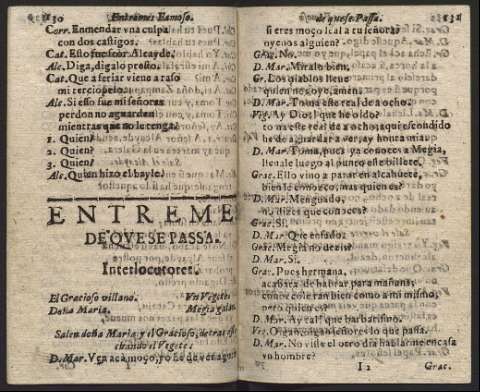 130 Entremés Famoso.
Corr. Enmendar vna culpa
con dos castigos.
Cat. Esto fue señor Alcayde.
Alc. Diga, digalo presto.
Cat. Que a feriar viene a raso
mi terciopelo.
Alc. Si esso fue mi señoras
perdon no aguarden
mientras que no le tenga.
1. Quien?
2. Quien?
3. Quien?
Alc. Quien hizo el bayle.
ENTREME
DE QVE SE PASSA.
Interlocutores.
El Gracioso villano. Vn Vegete.
Doña Maria. Megia galan.
Salen doña Maria, y el Gracioso, detras
el Vegete.
D. Mar. Vẽ acá moço,
de que se Passa. 131
si eres moço leal a tu señora?
oyenos alguien?
Gra. No.
D. Mar. Miralo bien.
Gr. Los diablos lleue
quien nos oye, amen.
D. Mar. Toma este real de a ocho.
Veg. Ay Dios! que he oido?
toma este real de a ocho, aqui escondido
he de aguardar a ver, ay honra mia.
D. Mar. Toma, pues ya conoces a Megia,
lleuale luego al punto este billete.
Grac. Ello vino a parar en alcahuete,
bien le conozco, mas quien es?
D. Mar. Menguado,
no dizes que conoces?
Grac. Si.
D. Mar. Que enfado.
Grac. Megia no dezis?
D. Mar. Si.
Grac. Pues hermana,
acabara de hablar para mañana,
conozcole tan bien como a mi mismo,
pero quien es?
D. Mar. Ay tal! que barbarismo.
Ve. Oigan, oigan señores lo que passa.
D. Mar. No viste el otro dia hablarme en casa
vn hombre?
I 2 Grac.